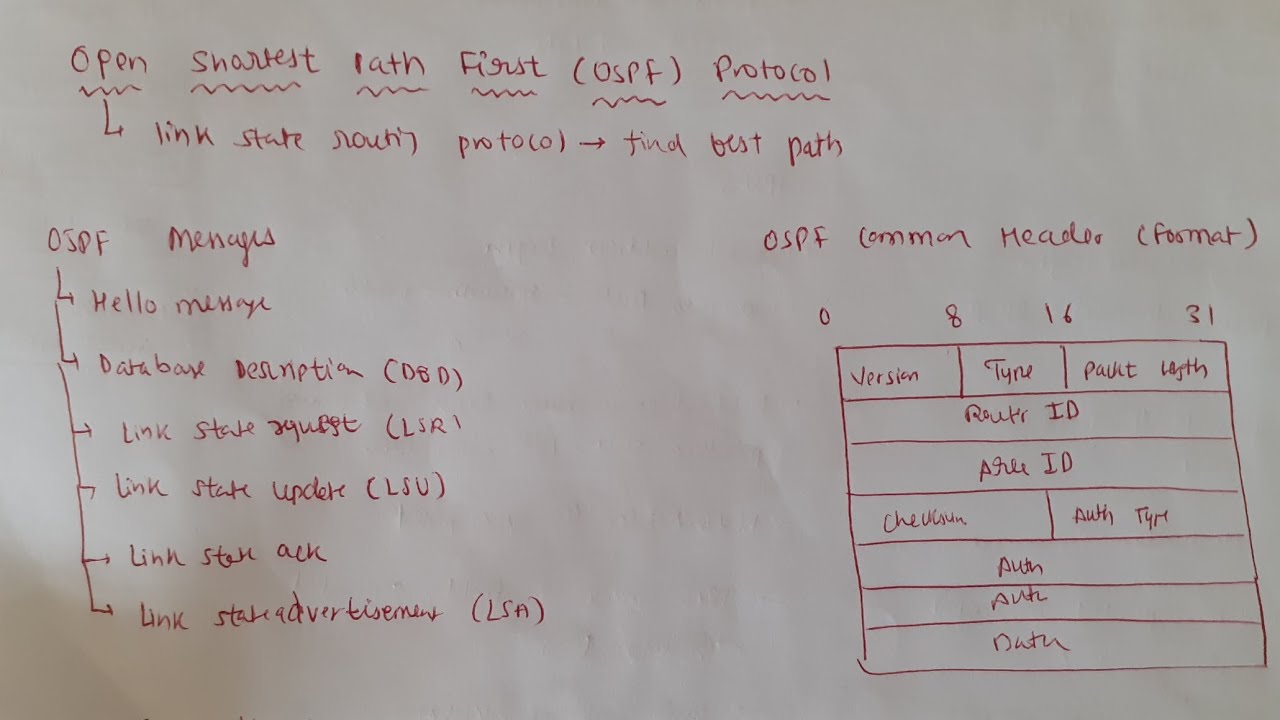 Open Shortest Path First (OSPF) Protocol
link state routing protocol → find best path
OSPF Messages
Hello message
Database Description (DBD)
Link state request (LSR)
Link state update (LSU)
Link state ack
Link state advertisement (LSA)
OSPF Common Header (Format)
0 8 16 31
Version Type Packet Length
Router ID
Area ID
Checksum Auth Type
Auth
Auth
Data